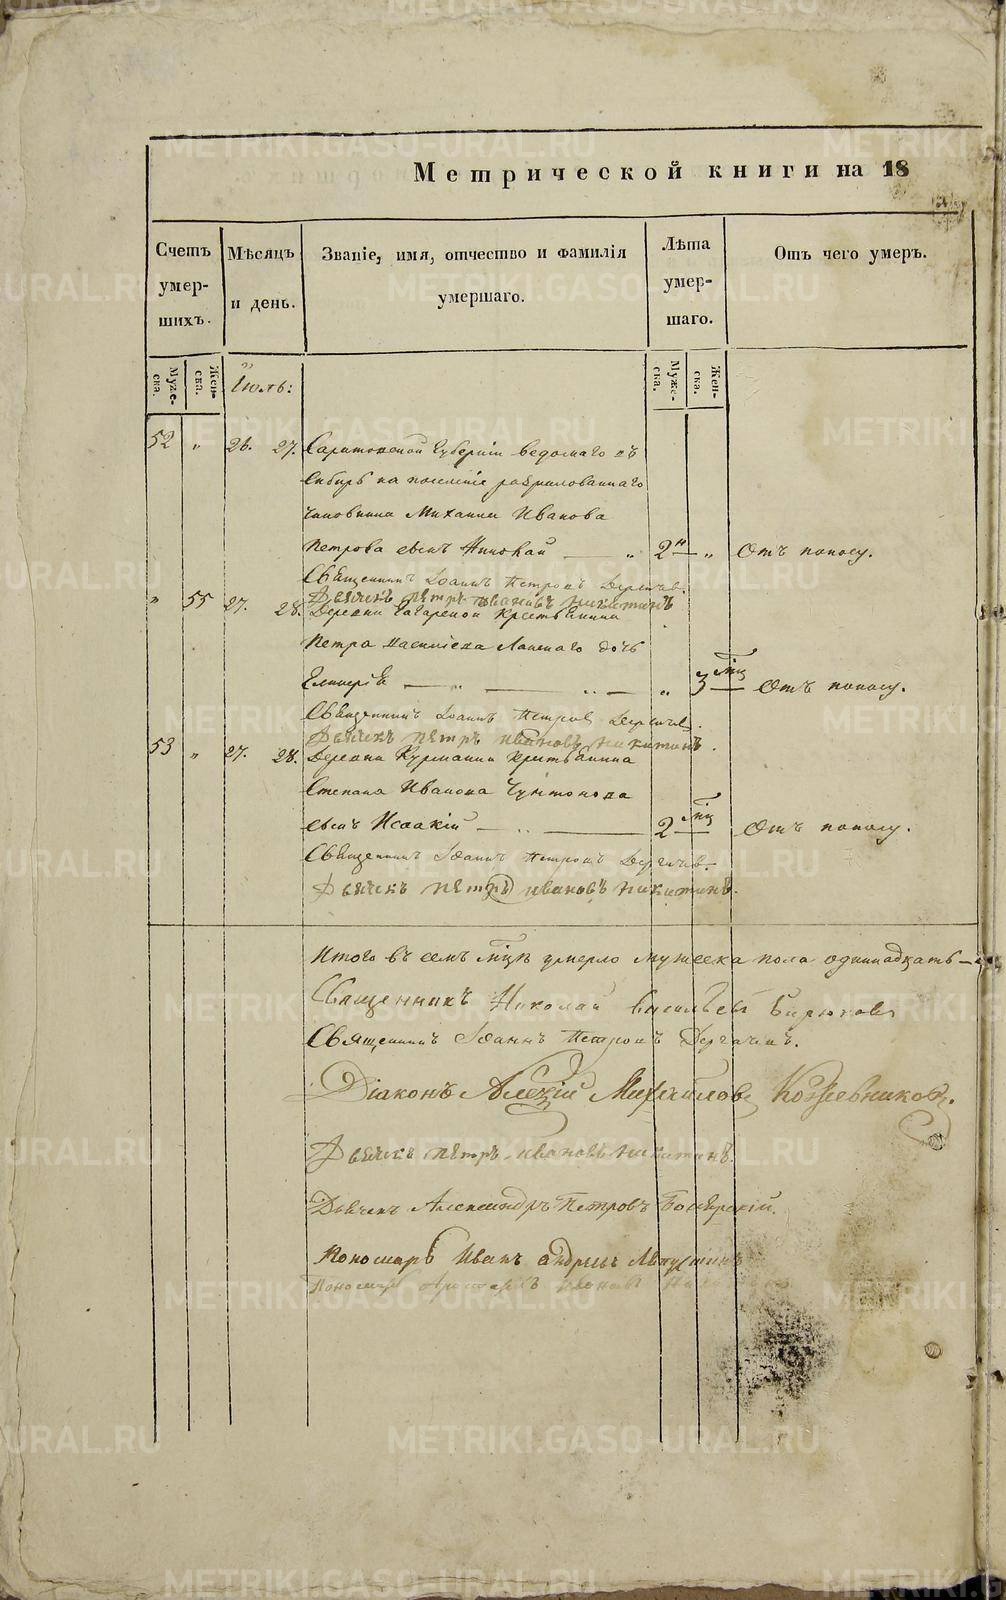 Метрической книги на 18
Счетъ умер-шихъ.
Мѣсяцъ и день.
Званіе, имя, отчество и фамилія умершаго.
Лѣта умер-шаго.
Отъ чего умеръ.
Муже-ска.
Жен-ска.
Іюль:
Муже-ска.
Жен-ска.
52 „ 26. 27. Саратовской Губерніи ведомаго въ
Сибирь на поселеніе
чиновника Михаила Иванова
Петрова сынъ Николай — „ 2 н „ Отъ поносу.
Священникъ Іоаннъ Петровъ Дергачевъ.
Дьячекъ Петръ Ивановъ Никитинъ
„ 55 27. 28. Деревни крестьянина
Петра дочь
— „ — „ — „ 3 мц Отъ поносу.
Священникъ Іоаннъ Петровъ Дергачевъ.
Дьячекъ Петръ Ивановъ Никитинъ.
53 „ 27. 28. Деревни Курманки крестьянина
Степана Иванова
сынъ Исаакій — „ — 2 мц Отъ поносу.
Священникъ Іоаннъ Петровъ Дергачевъ.
Дьячекъ Петръ Ивановъ Никитинъ.
Итого въ семъ мцѣ умерло мужеска пола одиннадцать —
Священникъ Николай Васильевъ Бирюковъ
Священникъ Іоаннъ Петровъ Дергачевъ.
Діаконъ Алексій Михайловъ Кожевниковъ.
Дьячекъ Петръ Ивановъ Никитинъ.
Дьячекъ Александръ Петровъ
Пономарь Иванъ Андреевъ
Пономарь
METRIKI.GASO-URAL.RU